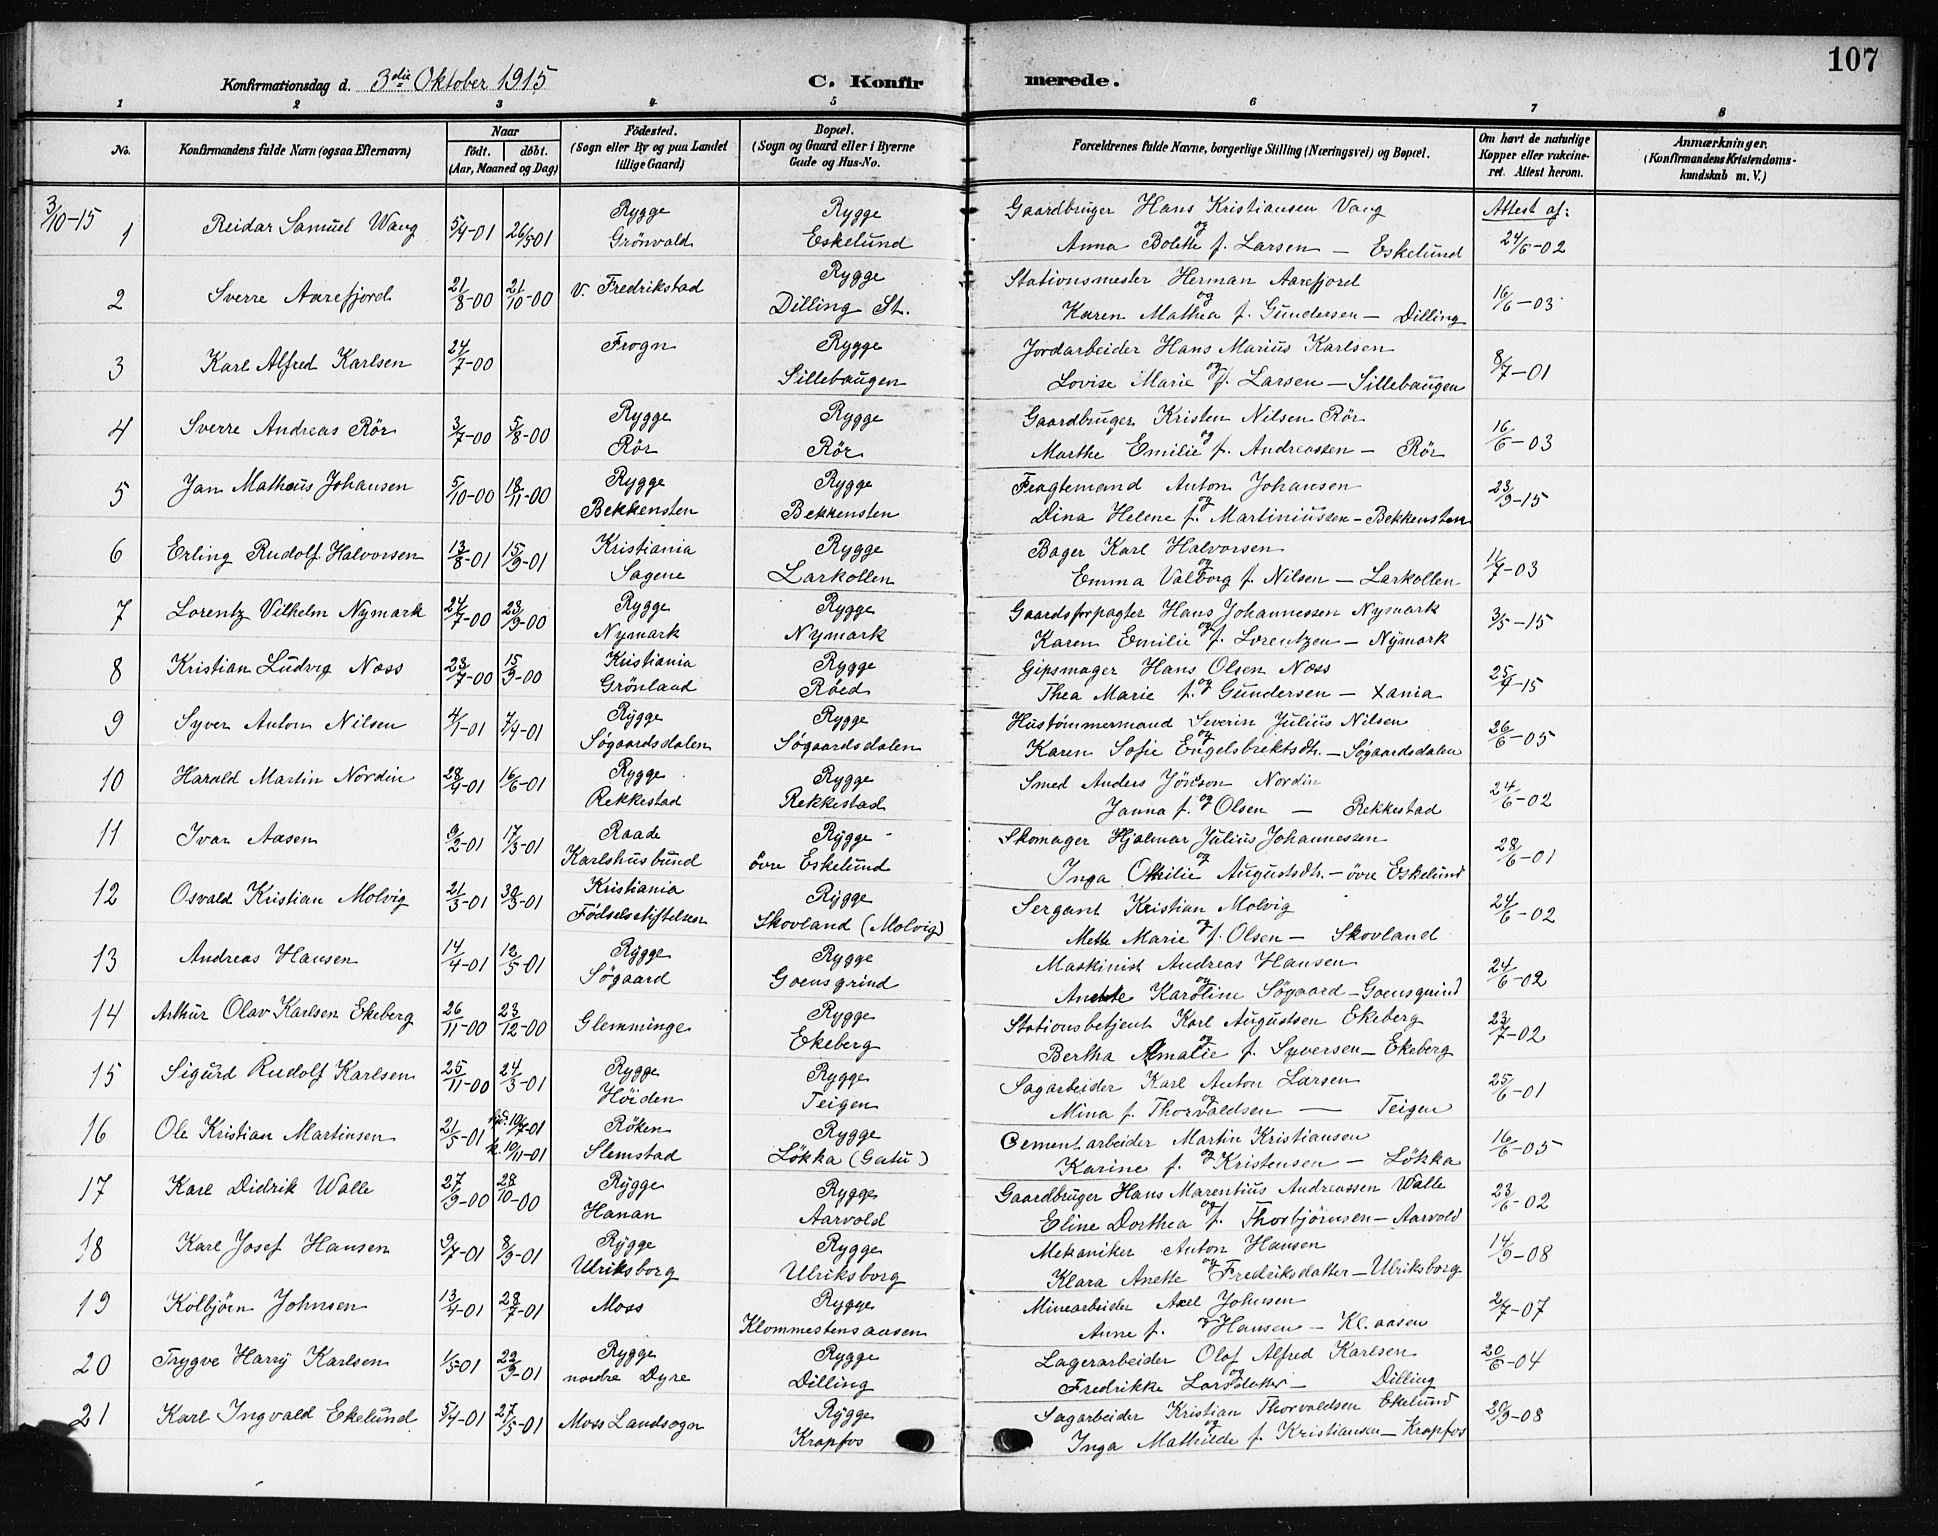 107
Konfirmationsdag d. 3die Oktober 1915 C. Konfirmerede.
1 2 3 4 5 6 7 8
No. Konfirmandens fulde Navn (ogsaa Efternavn) Naar født. døbt. (Aar, Maaned og Dag) Födested. (Sogn eller By og paa Landet tillige Gaard) Bopæl. (Sogn og Gaard eller i Byerne Gade og Hus-No. Forældrenes fulde Navne, borgerlige Stilling (Næringsvei) og Bopæl. Om havt de naturlige Kopper eller vakcineret. Attest herom. Anmærkninger. (Konfirmandens Kristendomskundskab m. V.)
3/10-15 Rygge Rygge Gaardbruger Hans Kristiansen Vang Attest af:
1 Reidar Samuel Wang 5/4-01 26/5 01 Grönvald Eskelund og Anna Bolette f. Larsen — Eskelund 24/6-02
Rygge Stationsmester Herman Aarefjord
2 Sverre Aarefjord 21/8-00 21/10-00 v. Fredrikstad Dilling St. og Karen Mathea f. Gundersen — Dilling 16/6-03
Frogn Rygge Jordarbeider Hans Marius Karlsen
3 Karl Alfred Karlsen 24/7-00 Sillebaugen og Lovise Marie f. Larsen — Sillebaugen 8/7-01
Rygge Rygge Gaardbruger Kristen Nilsen Rör
4 Sverre Andreas Rör 3/7-00 5/8-00 Rör Rör og Marthe Emilie f. Andreassen — Rör 16/6-03
Rygge Rygge Fragtemand Anton Johansen
5 Jan Mathæus Johansen 5/10-00 18/11-00 Bekkensten Bekkensten og Dina Helene f. Martiniussen — Bekkensten 23/9-15
Kristiania Rygge Bager Karl Halvorsen
6 Erling Rudolf Halvorsen 13/8-01 15/9-01 Sagene Larkollen og Emma Valborg f. Nilsen — Larkollen 11/7-03
Rygge Rygge Gaardsforpagter Hans Johannessen Nymark
7 Lorentz Vilhelm Nymark 24/7-00 23/9-00 Nymark Nymark og Karen Emilie f. Lorentzen — Nymark 3/5-15
Kristiania Rygge Gipsmager Hans Olsen Næss
8 Kristian Ludvig Næss 23/7-00 15/9-00 Grönland Röed og Thea Marie f. Gundersen — Xania 25/4-15
Rygge Rygge Hustömmermand Severin Julius Nilsen
9 Syver Anton Nilsen 4/1-01 7/4-01 Søgaardsdalen Søgaardsdalen og Karen Sofie Engelsbrektsdtr. — Søgaardsdalen 26/6-05
Rygge Rygge Smed Anders Jönsson Nordin
10 Harald Martin Nordin 28/4-01 16/6-01 Rekkestad Rekkestad og Janna f. Olsen — Rekkestad 24/6-02
Raade Rygge Skomager Hjalmar Julius Johannessen
11 Ivar Aasen 9/2-01 17/3-01 Karlshusbund övre Eskelund og Inga Otilie Augustsdtr. — övre Eskelund 28/6-01
Kristiania Rygge Sergant Kristian Molvig
12 Osvald Kristian Molvig 21/3-01 30/3-01 Fødselsstiftelsen Skovland (Molvig) og Mette Marie f. Olsen — Skovland 24/6-02
Rygge Rygge Maskinist Andreas Hansen
13 Andreas Hansen 14/4-01 12/5-01 Søgaard Goensgrind og Anette Karoline Søgaard — Goensgrind 24/6-02
Rygge Stationsbetjent Karl Augustsen Ekeberg
14 Arthur Olav Karlsen Ekeberg 26/11-00 23/12-00 Glemminge Ekeberg og Bertha Amalie f. Syversen — Ekeberg 23/7-02
Rygge Rygge Sagarbeider Karl Anton Larsen
15 Sigurd Rudolf Karlsen 25/11-00 24/3-01 Höiden Teigen og Mina f. Thorvaldsen — Teigen 25/6-01
Röken Rygge Cementarbeider Martin Kristiansen
16 Ole Kristian Martinsen 21/5-01 k. 10/11-01 Slemstad Løkka (Gatu) og Karine f. Kristensen — Løkka 16/6-05
Rygge Rygge Gaardbruger Hans Marentius Andreassen Walle
17 Karl Didrik Walle 27/9-00 28/10-00 Hanan Aarvold og Eline Dorthea f. Thorbjörnsen — Aarvold 23/6-02
Rygge Rygge Mekaniker Anton Hansen
18 Karl Josef Hansen 9/7-01 8/9-01 Ulriksborg Ulriksborg og Klara Anette Fredriksdatter — Ulriksborg 14/9-08
Rygge Minearbeider Axel Johnsen
19 Kolbjörn Johnsen 13/4-01 28/7-01 Moss Klommestensaasen og Anne f. Hansen — Kl. aasen 2/7-07
Rygge Rygge Lagerarbeider Olof Alfred Karlsen
20 Trygve Harry Karlsen 1/5-01 22/9-01 nordre Dyre Dilling og Fredrikke Larsdatter — Dilling 20/6-04
Rygge Sagarbeider Kristian Thorvaldsen Ekelund
21 Karl Ingvald Ekelund 5/4-01 27/5-01 Moss Landsogn Krapfos og Inga Mathilde f. Kristiansen — Krapfos 20/9-08